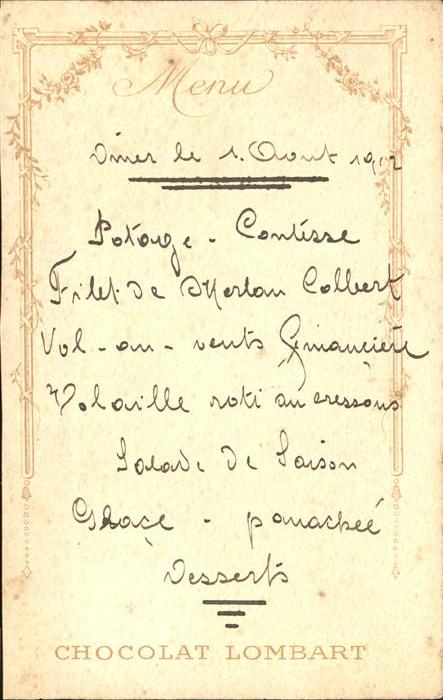 Menu
Diner le 1. Aout 1912
Potage - Contisse
Filet de Merlan Colbert
Vol-au-vents financière
Volaille roti au cressons
Salade de Saison
Glace - panacheé
Desserts
CHOCOLAT LOMBART